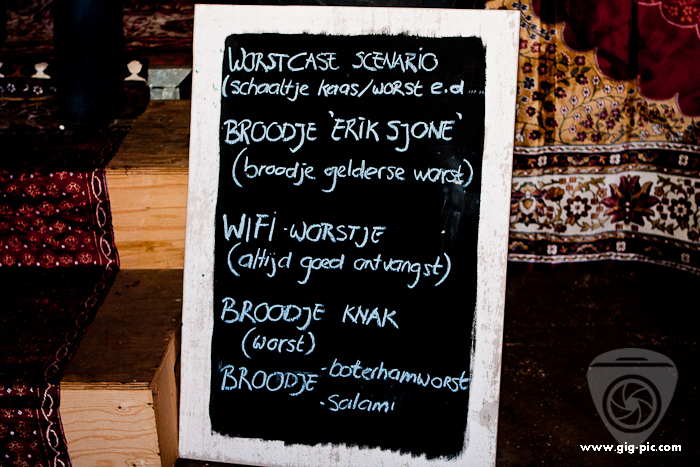 WORSTCASE SCENARIO
(schaaltje kaas/worst e.d.....
BROODJE 'ERIK SJONE'
(broodje gelderse worst)
WIFI-WORSTJE
(altijd goed ontvangst)
BROODJE KNAK
(worst)
BROODJE -boterhamworst
-salami
www.gig-pic.com